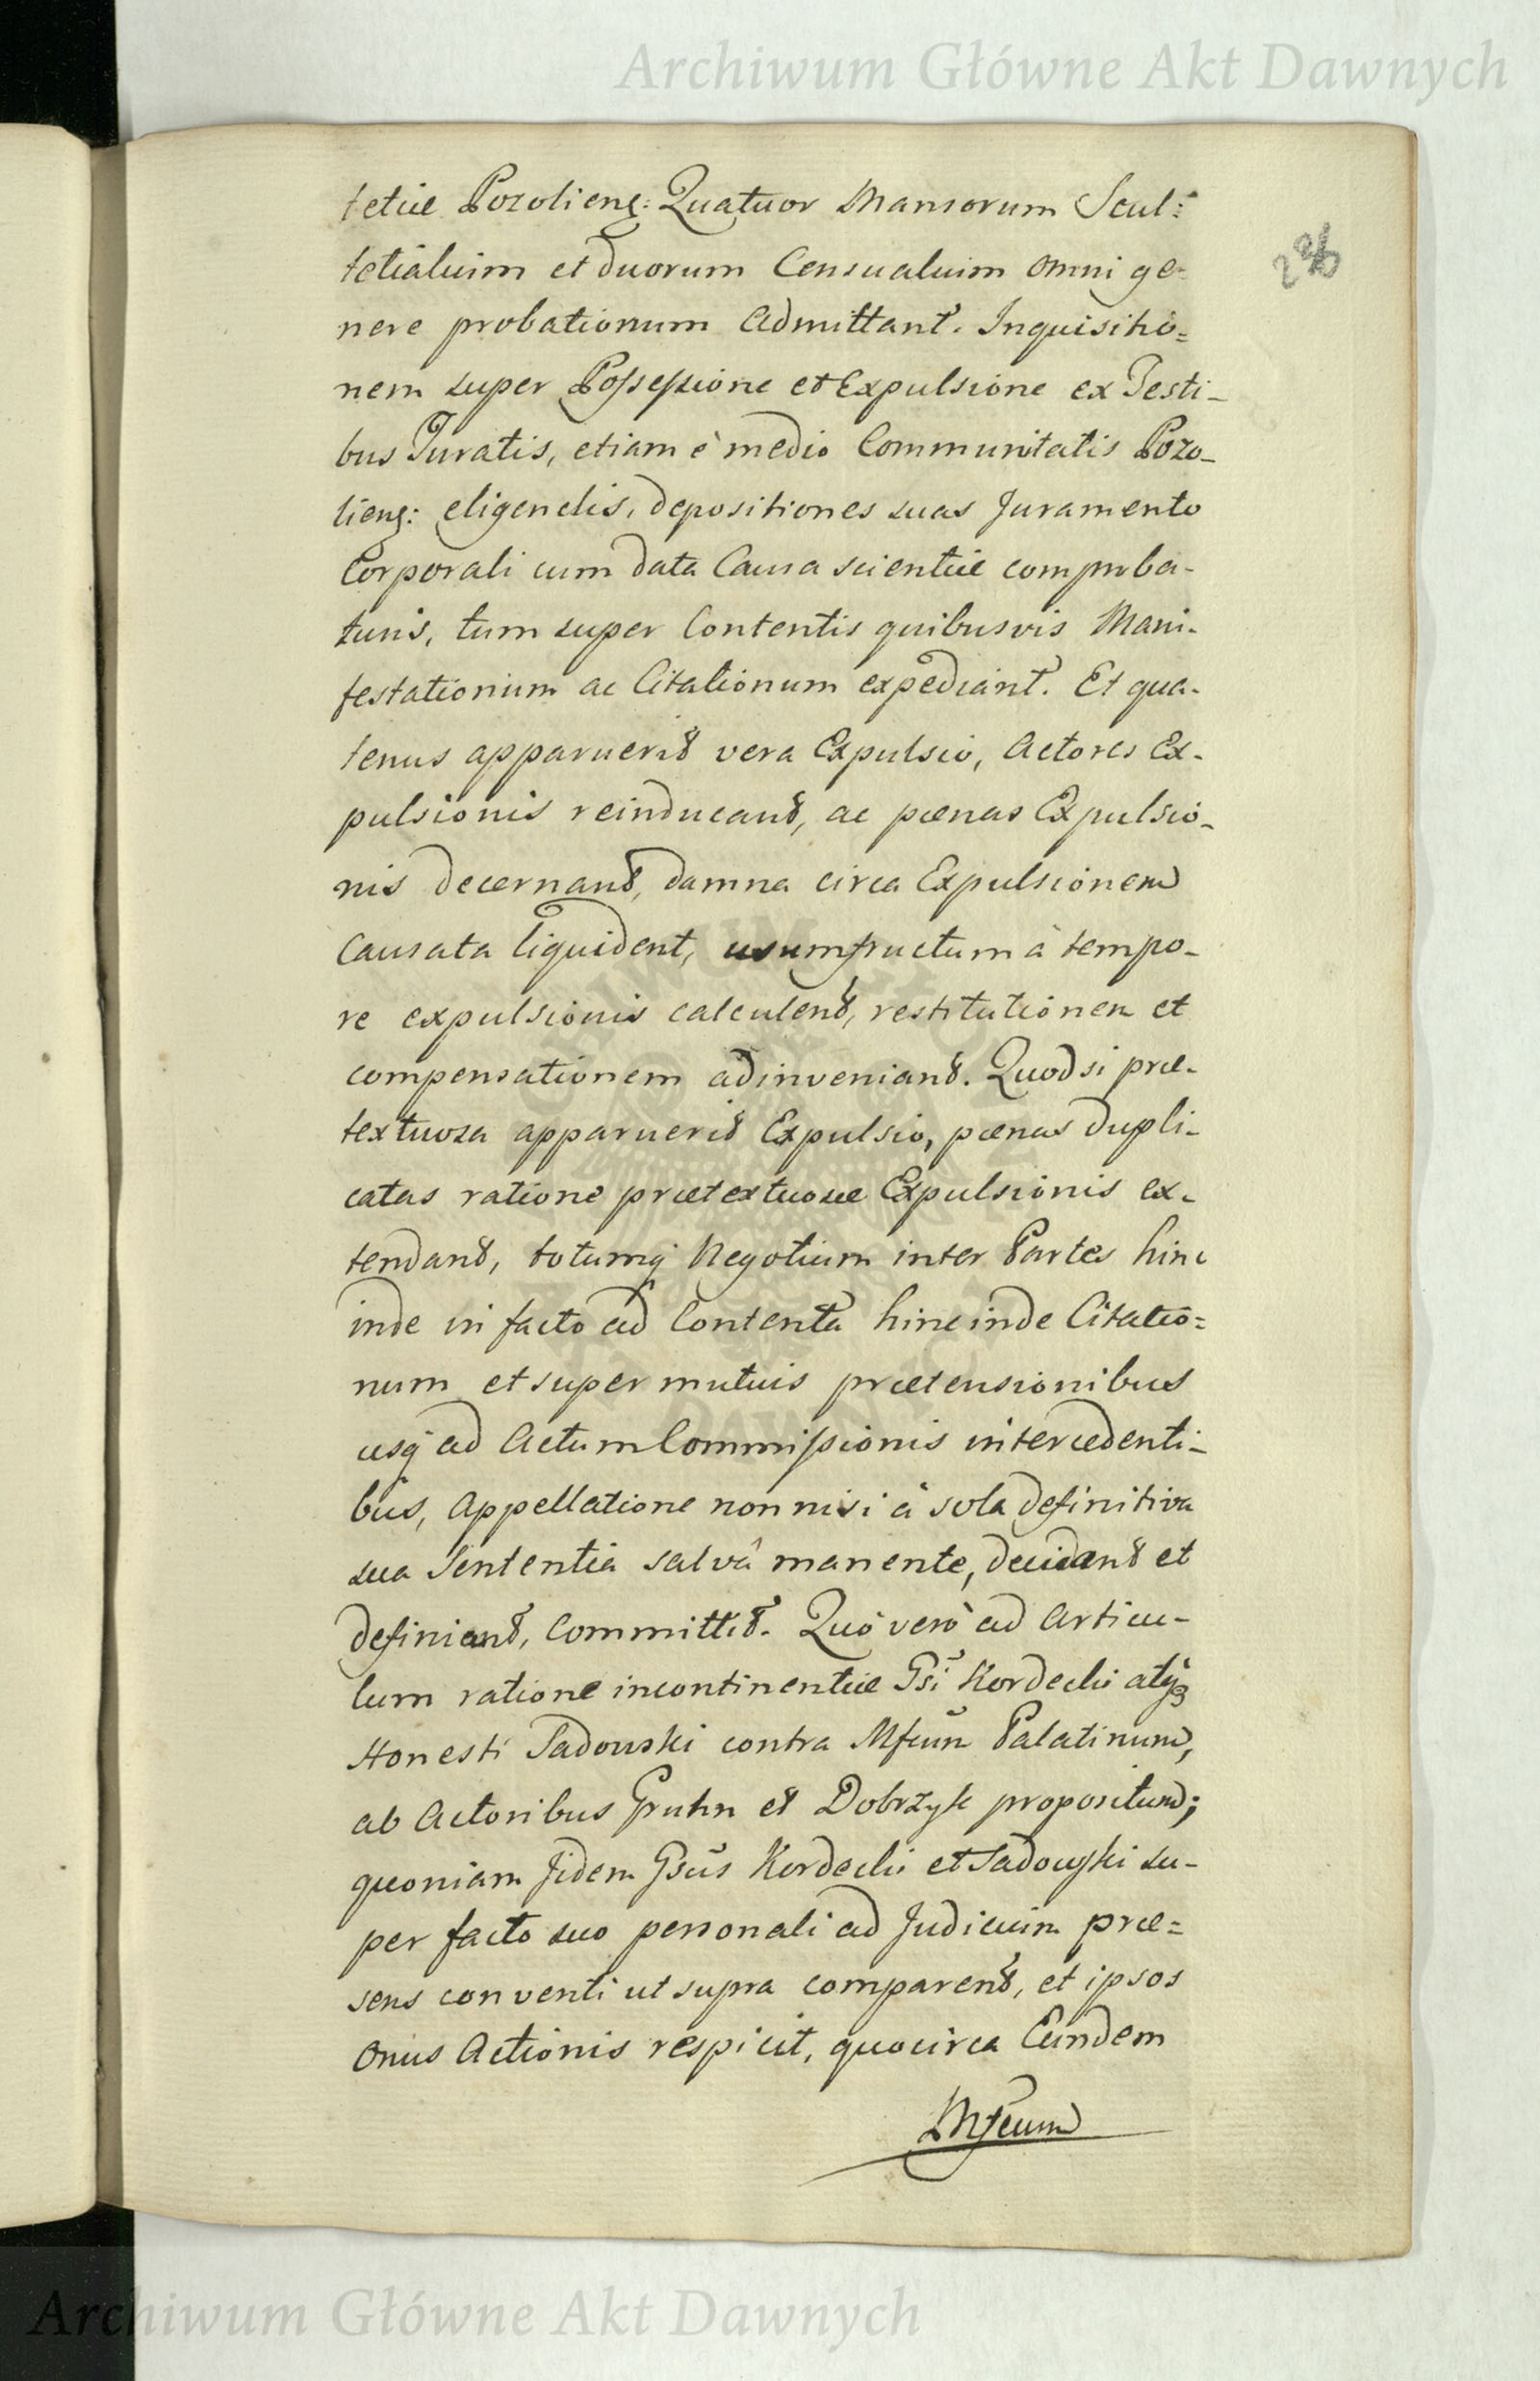 Archiwum Główne Akt Dawnych
tetiæ Pozolieng: Quatuor Mansorum Scul=
tetialium et duorum Censualium omni ge-
nere probationum Admittant. Inquisitio=
nem super Possessione et Expulsione ex Testi-
bus Juratis, etiam è medio Communitatis Pozo-
lieng: eligendis, depositiones suas Juramento
Corporali cum data Causa scientiæ comproba-
turis, tum super Contentis quibusvis Mani-
festationum ac Citationum expediant. Et qua-
tenus apparuerit vera Expulsio, Actores Ex-
pulsionis reinducant, ac pœnas Expulsio-
nis decernant, damna circa Expulsionem
Causata liquident, usumfructum à tempo-
re expulsionis calculent, restitutionem et
compensationem adinveniant. Quodsi præ-
textuosa apparuerit Expulsio, pœnas dupli-
catas ratione prætextuosæ Expulsionis ex-
tendant, totumq Negotium inter Partes hinc
inde in facto ad Contenta hincinde Citatio=
num et super mutuis prætensionibus
usq ad Actum Commissionis intercedenti-
bus, Appellatione non nisi à sola definitiva
sua Sententia salvâ manente, decidant et
definiant, Committit. Quò verò ad Articu-
lum ratione incontinentiæ Gsi Kordecki atq
Honesti Sadowski contra Mfcum Palatinum,
ab Actoribus Gruhn et Dobrzyk propositum;
quoniam Jidem Gsus Kordecki et Sadowski su-
per facto suo personali ad Judicium præ=
sens conventi ut supra comparent, et ipsos
Onus Actionis respicit, quocirca Eundem
Mfcum
Archiwum Główne Akt Dawnych